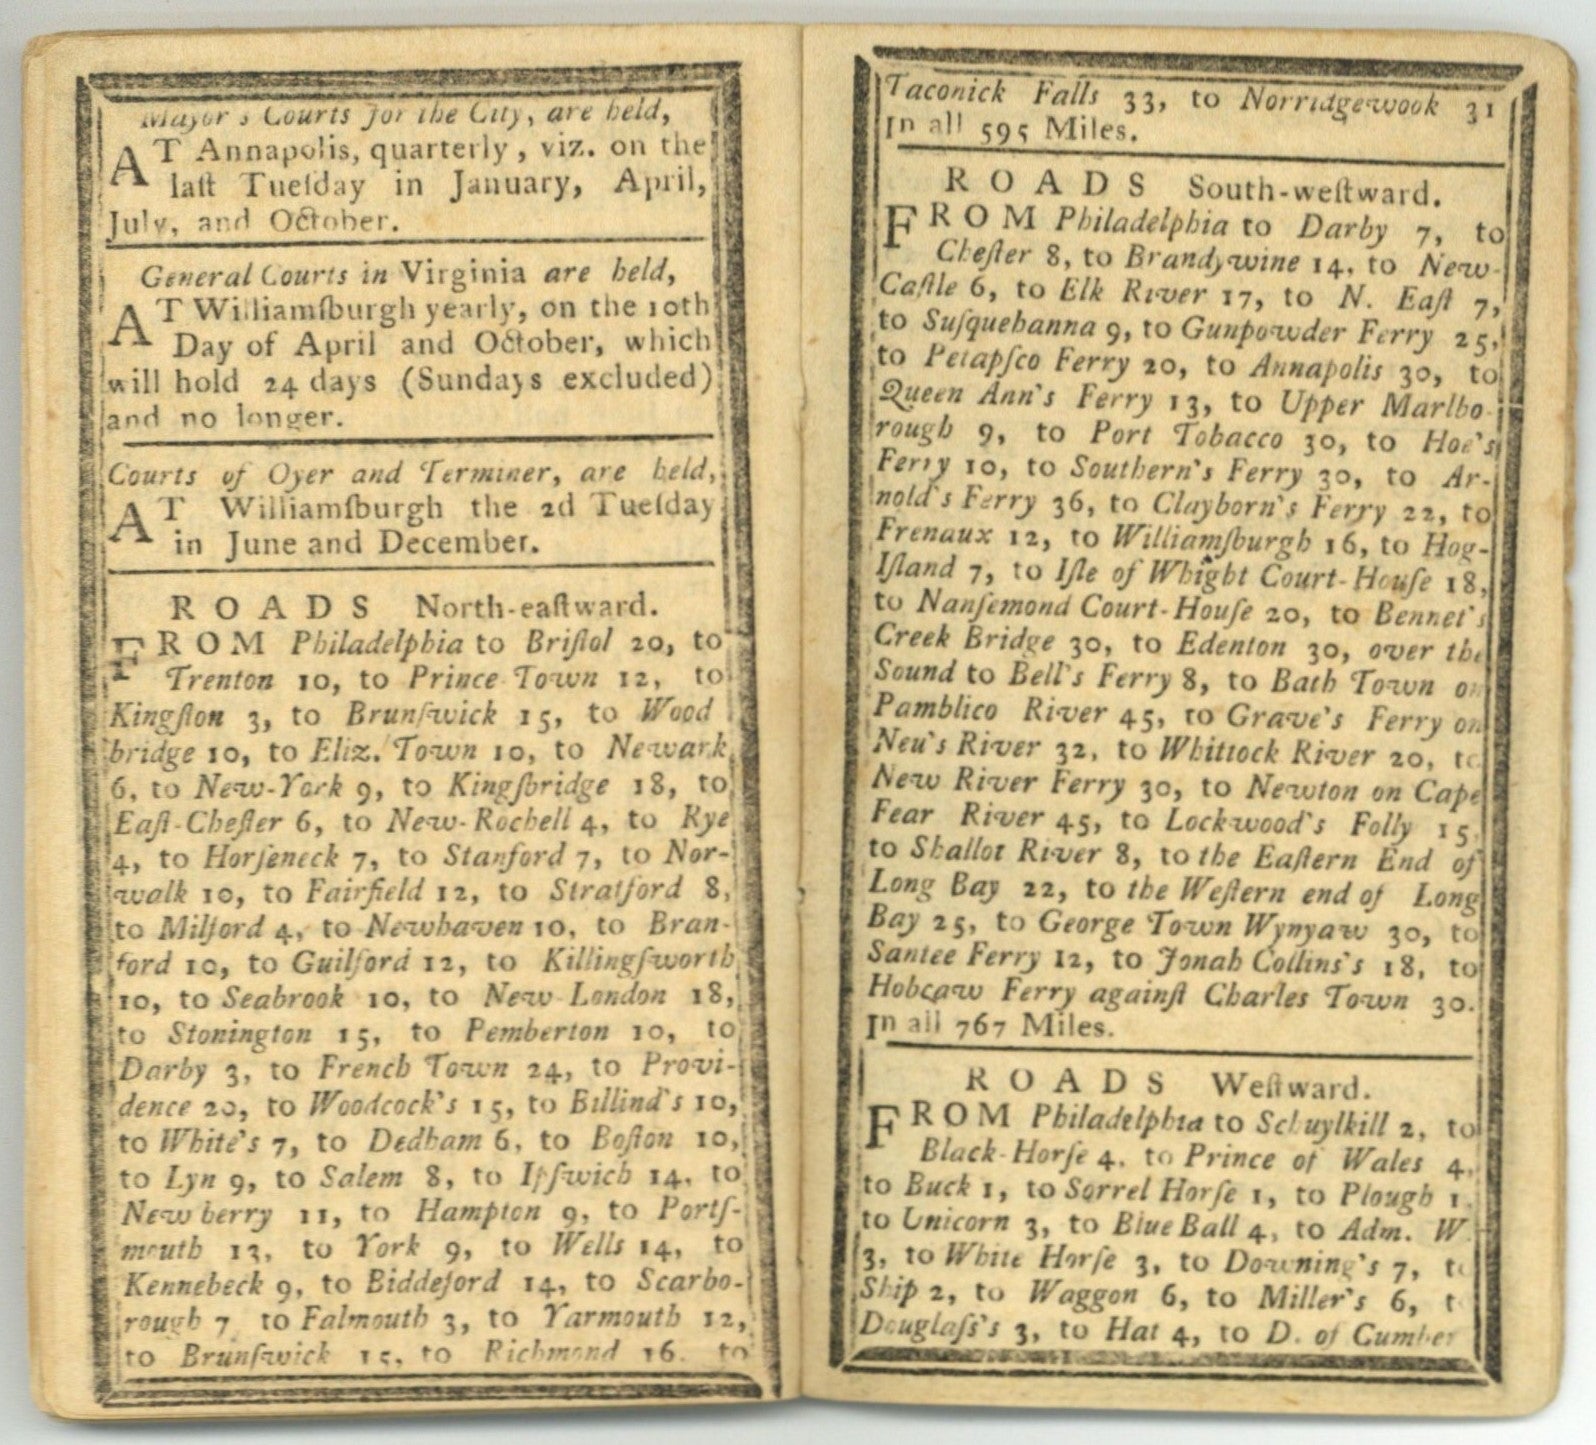 Mayor's Courts for the City, are held,
AT Annapolis, quarterly, viz. on the
laſt Tueſday in January, April,
July, and October.
General Courts in Virginia are held,
AT Williamſburgh yearly, on the 10th
Day of April and October, which
will hold 24 days (Sundays excluded)
and no longer.
Courts of Oyer and Terminer, are held,
AT Williamſburgh the 2d Tueſday
in June and December.
ROADS North-eaſtward.
FROM Philadelphia to Briſtol 20, to
Trenton 10, to Prince Town 12, to
Kingſton 3, to Brunſwick 15, to Wood
bridge 10, to Eliz. Town 10, to Newark
6, to New-York 9, to Kingſbridge 18, to
Eaſt-Cheſter 6, to New-Rochell 4, to Rye
4, to Horſeneck 7, to Stanford 7, to Nor-
walk 10, to Fairfield 12, to Stratford 8,
to Milford 4, to Newhaven 10, to Bran-
ford 10, to Guilford 12, to Killingſworth
10, to Seabrook 10, to New London 18,
to Stonington 15, to Pemberton 10, to
Darby 3, to French Town 24, to Provi-
dence 20, to Woodcock's 15, to Billind's 10,
to White's 7, to Dedham 6, to Boſton 10,
to Lyn 9, to Salem 8, to Ipſwich 14, to
Newberry 11, to Hampton 9, to Portſ-
mouth 13, to York 9, to Wells 14, to
Kennebeck 9, to Biddeford 14, to Scarbo-
rough 7, to Falmouth 3, to Yarmouth 12,
to Brunſwick 15, to Richmond 16, to
Taconick Falls 33, to Norridgewook 31
In all 595 Miles.
ROADS South-weſtward.
FROM Philadelphia to Darby 7, to
Cheſter 8, to Brandywine 14, to New-
Caſtle 6, to Elk River 17, to N. Eaſt 7,
to Suſquehanna 9, to Gunpowder Ferry 25,
to Petapſco Ferry 20, to Annapolis 30, to
Queen Ann's Ferry 13, to Upper Marlbo-
rough 9, to Port Tobacco 30, to Hoe's
Ferry 10, to Southern's Ferry 30, to Ar-
nold's Ferry 36, to Clayborn's Ferry 22, to
Frenaux 12, to Williamſburgh 16, to Hog-
Iſland 7, to Iſle of Whight Court-Houſe 18,
to Nanſemond Court-Houſe 20, to Bennet's
Creek Bridge 30, to Edenton 30, over the
Sound to Bell's Ferry 8, to Bath Town on
Pamblico River 45, to Grave's Ferry on
Neu's River 32, to Whittock River 20, to
New River Ferry 30, to Newton on Cape
Fear River 45, to Lockwood's Folly 15,
to Shallot River 8, to the Eaſtern End of
Long Bay 22, to the Weſtern end of Long
Bay 25, to George Town Wynyaw 30, to
Santee Ferry 12, to Jonah Collins's 18, to
Hobcaw Ferry againſt Charles Town 30.
In all 767 Miles.
ROADS Weſtward.
FROM Philadelphia to Schuylkill 2, to
Black-Horſe 4, to Prince of Wales 4,
to Buck 1, to Sorrel Horſe 1, to Plough 1
to Unicorn 3, to Blue Ball 4, to Adm. W.
3, to White Horſe 3, to Downing's 7, to
Ship 2, to Waggon 6, to Miller's 6, t
Douglaſs's 3, to Hat 4, to D. of Cumber